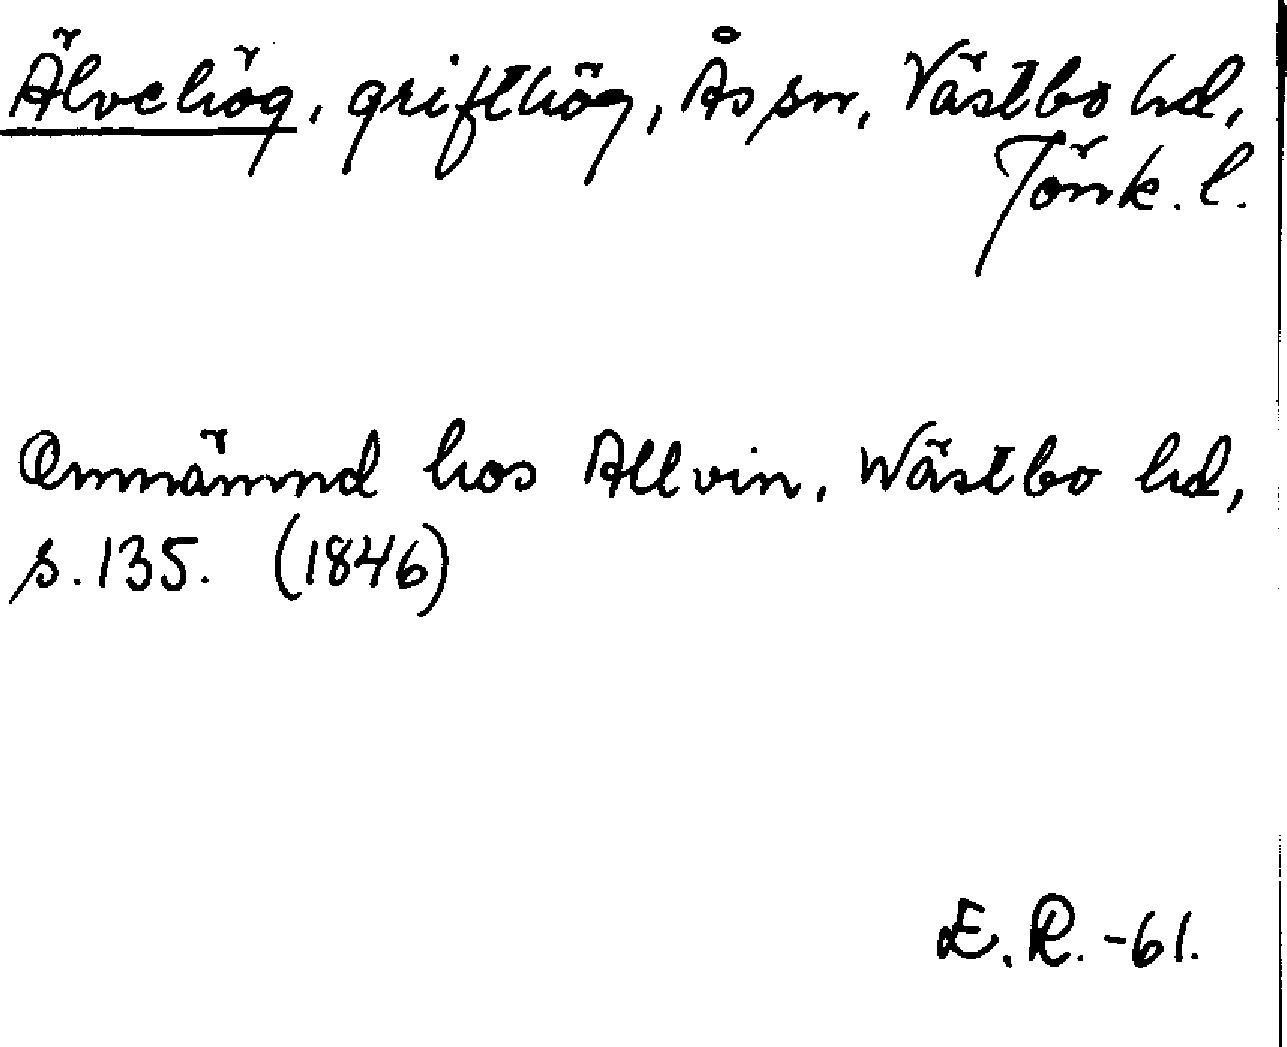 Älvehög, grifthög, Ås sn, Västbo hd,
Jönk. l.
Omnämnd hos Allvin, Wästbo hd,
s. 135. (1846)
E. R. -61.